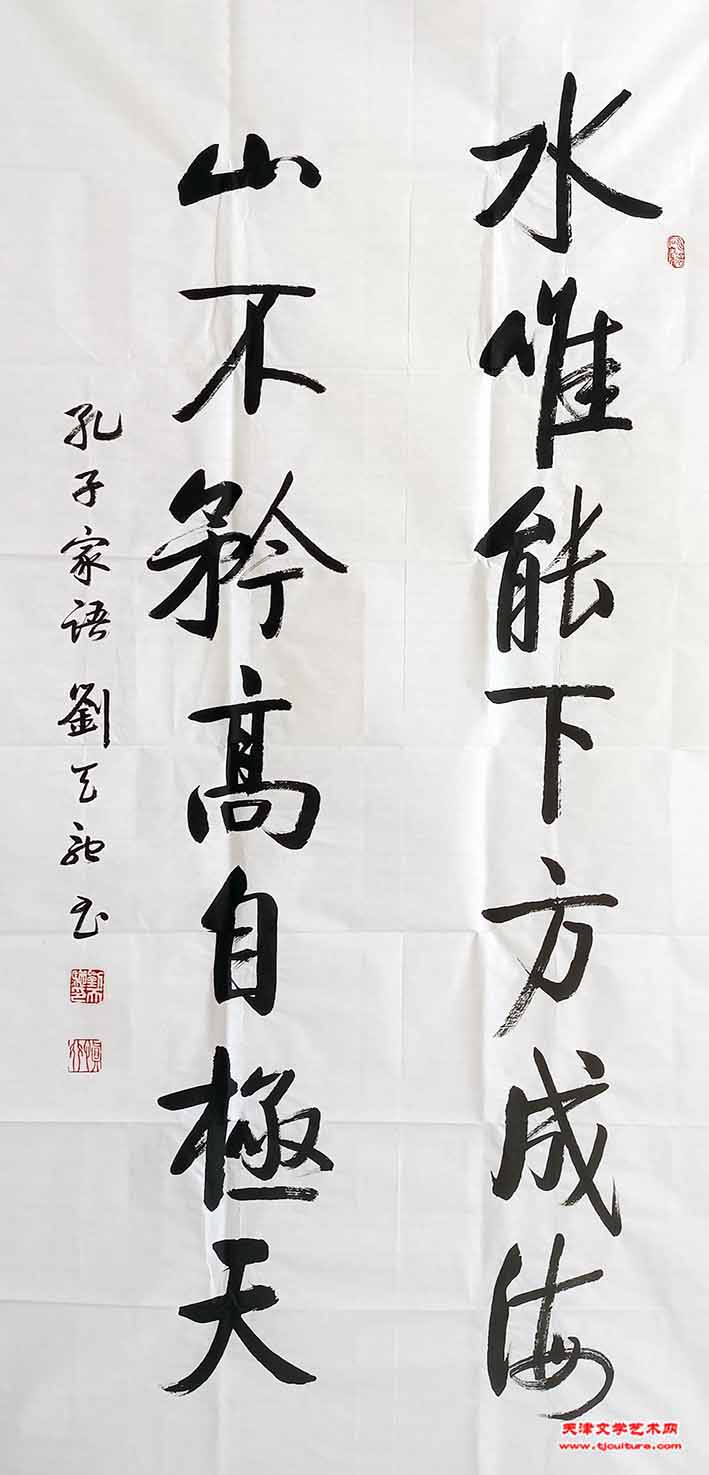 水唯能下方成海
山不矜高自極天
孔子家语 劉天 书
天津文学艺术网
www.tjculture.com